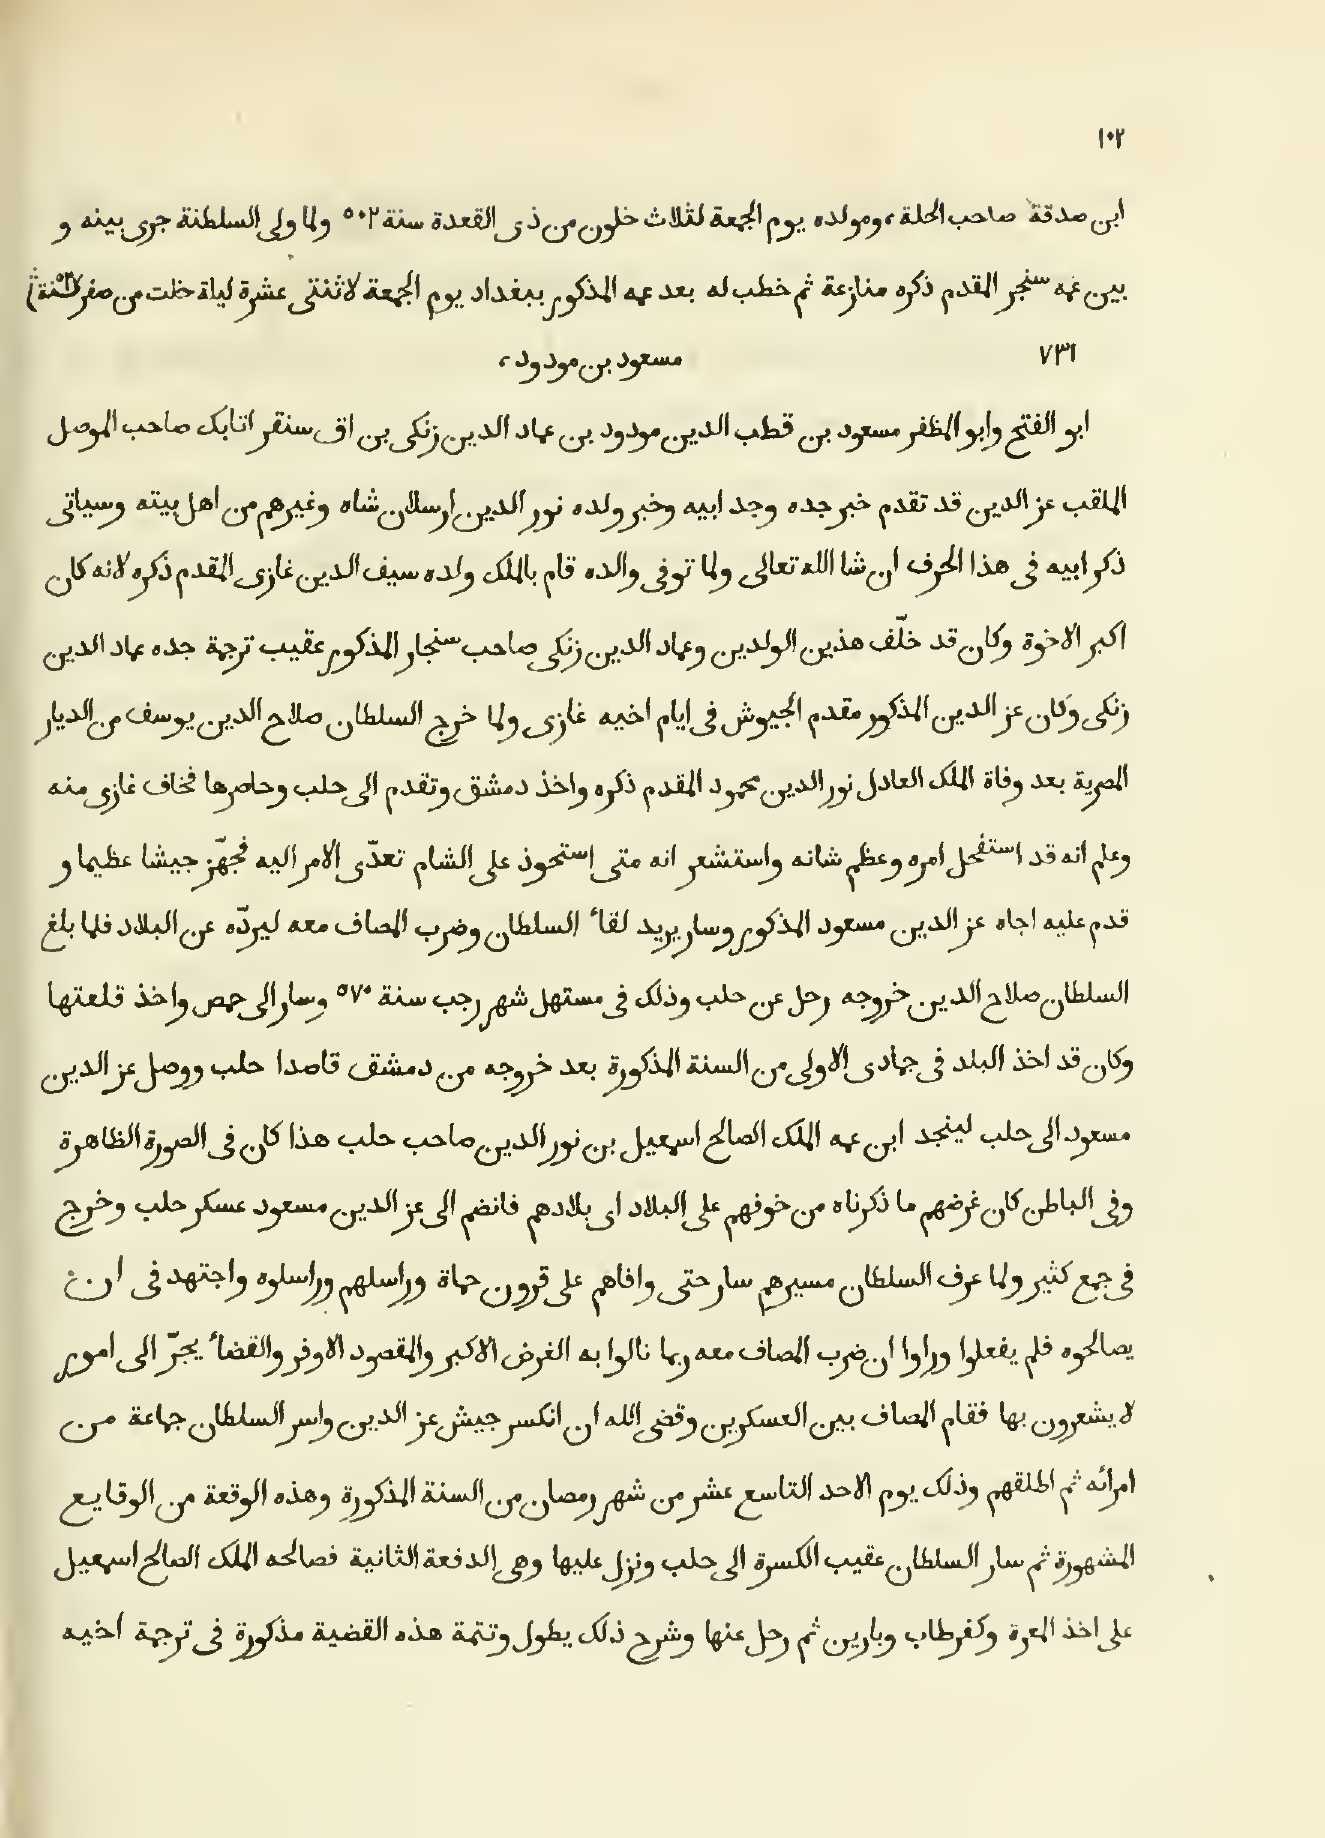 ١٠٢
ابن صدقة صاحب الحلة، ومولده يوم الجمعة لثلاث خلون من ذى القعدة سنة ٥٠٢ ولما ولى السلطنة جرى بينه و
بين عمه سنجر المقدم ذكره منازعة ثم خطب له بعد عمه المذكور ببغداد يوم الجمعة لاثنتى عشرة ليلة خلت من صفر سنة
٧٣١
مسعود بن مودود،
ابو الفتح وابو المظفر مسعود بن قطب الدين مودود بن عماد الدين زنكى بن اق سنقر اتابك صاحب الموصل
الملقب عز الدين قد تقدم خبر جده وجد ابيه وخبر ولده نور الدين ارسلان شاه وغيرهم من اهل بيته وسياتى
ذكر ابيه فى هذا الحرف ان شا الله تعالى ولما توفى والده قام بالملك ولده سيف الدين غازى المقدم ذكره لانه كان
اكبر الاخوة وكان قد خلّف هذين الولدين وعماد الدين زنكى صاحب سنجار المذكور عقيب ترجمة جده عماد الدين
زنكى وكان عز الدين المذكور مقدم الجيوش فى ايام اخيه غازى ولما خرج السلطان صلاح الدين يوسف من الديار
المصرية بعد وفاة الملك العادل نور الدين محمود المقدم ذكره واخذ دمشق وتقدم الى حلب وحاصرها فخاف غازى منه
وعلم انه قد استفحل امره وعظم شانه واستشعر انه متى استحوذ على الشام تعدّى الامر اليه فجهّز جيشا عظيما و
قدم عليه اجاه عز الدين مسعود المذكور وسار يريد لقاء السلطان وضرب المصاف معه ليردّه عن البلاد فلما بلغ
السلطان صلاح الدين خروجه رحل عن حلب وذلك فى مستهل شهر رجب سنة ٥٧٠ وسار الى حمص واخذ قلعتها
وكان قد اخذ البلد فى جمادى الاولى من السنة المذكورة بعد خروجه من دمشق قاصدا حلب ووصل عز الدين
مسعود الى حلب لينجد ابن عمه الملك الصالح اسمعيل بن نور الدين صاحب حلب هذا كان فى الصورة الظاهرة
وفى الباطن كان غرضهم ما ذكرناه من خوفهم على البلاد اى بلادهم فانضم الى عز الدين مسعود عسكر حلب وخرج
فى جمع كثير ولما عرف السلطان مسيرهم سار حتى وافاهم على قرون حماة وراسلهم وراسلوه واجتهد فى ان
يصالحوه فلم يفعلوا وراوا ان ضرب المصاف معه ربما نالوا به الغرض الاكبر والمقصود الاوفر والقضاء يجرّ الى امور
لا يشعرون بها فقام المصاف بين العسكرين وقضى الله ان انكسر جيش عز الدين واسر السلطان جماعة من
امرائه ثم اطلقهم وذلك يوم الاحد التاسع عشر من شهر رمصان من السنة المذكورة وهذه الوقعة من الوقايع
المشهورة ثم سار السلطان عقيب الكسرة الى حلب ونزل عليها وهى الدفعة الثانية فصالحه الملك الصالح اسمعيل
على اخذ المعرة وكفرطاب وبارين ثم رحل عنها وشرح ذلك يطول وتتمة هذه القضية مذكورة فى ترجمة اخيه